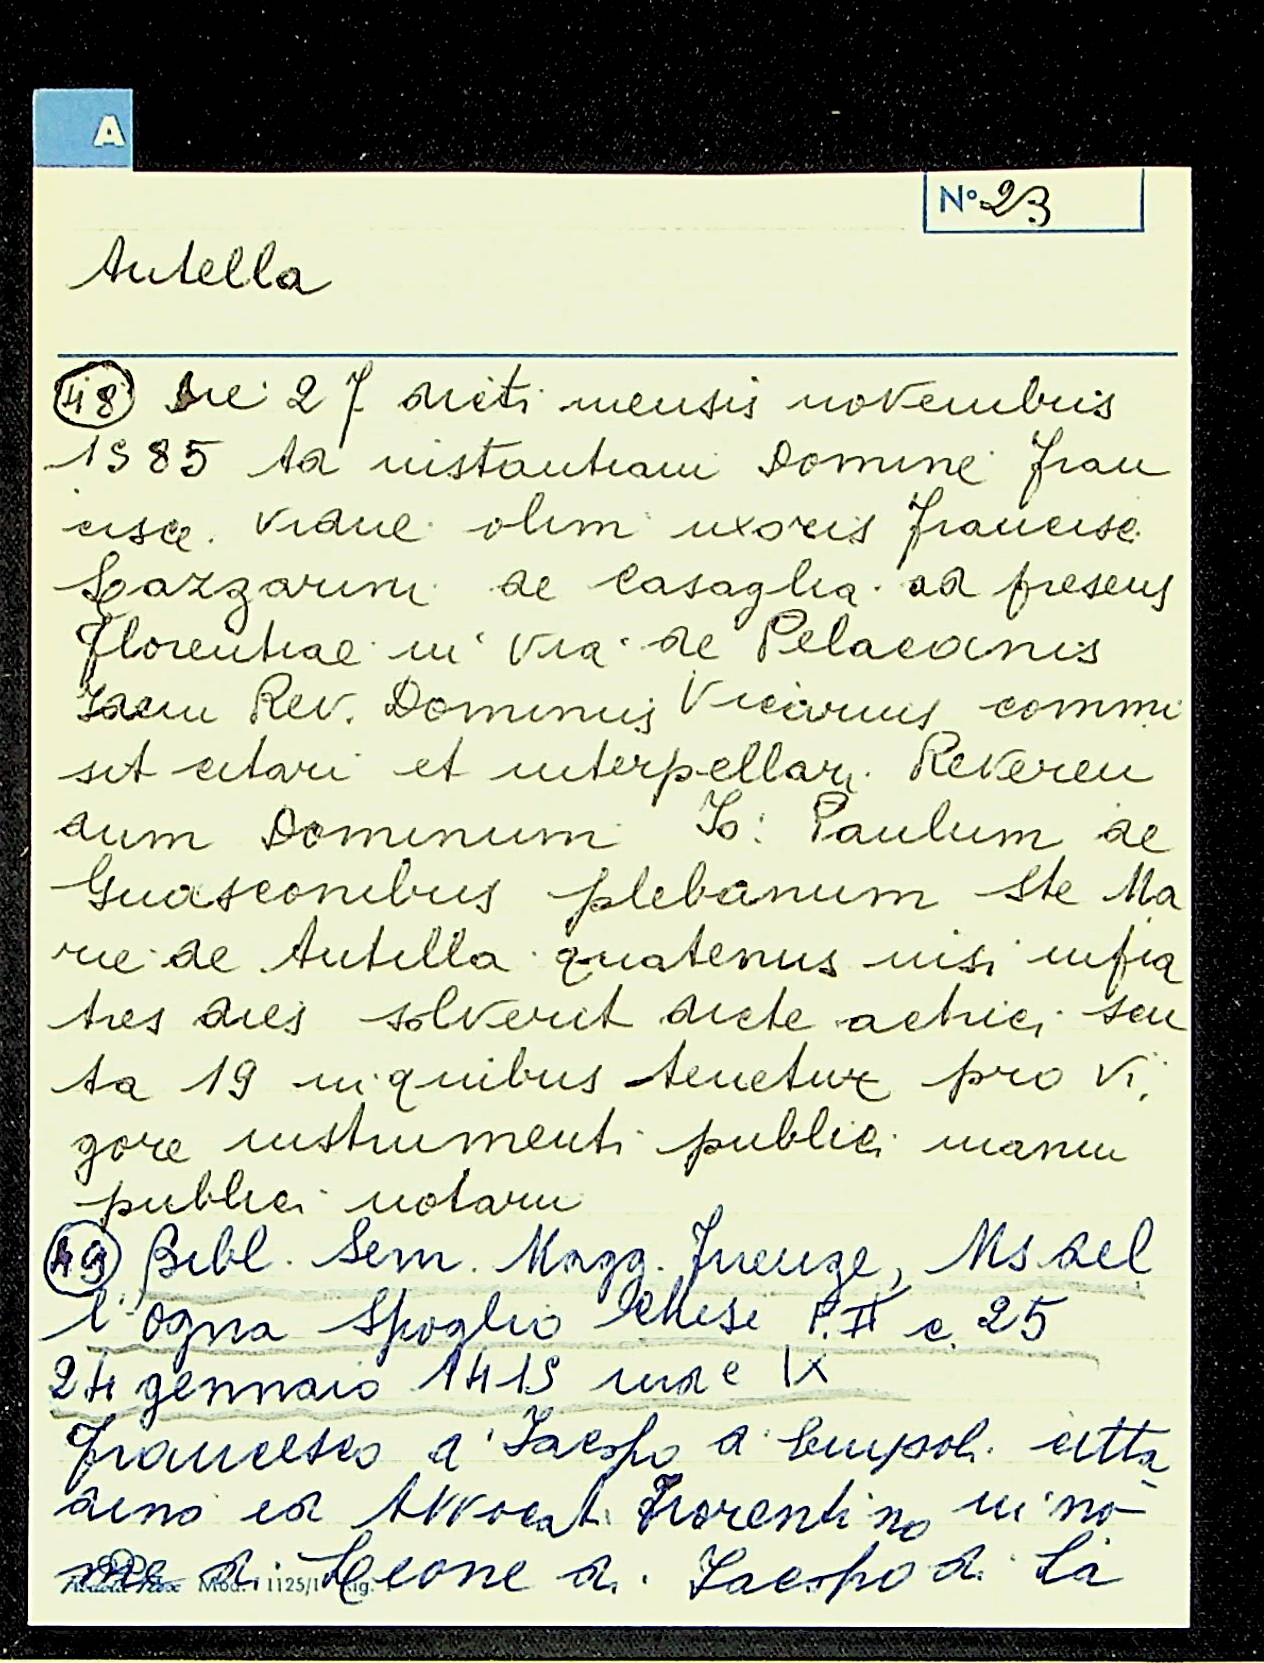 A
N° 23
Antella
48 Die 27 dicti mensis novembris
1585 Ad instantiam Domine Fran
cisce vidue olim uxoris Francisc
Lazzarini de Casaglia ad presens
Florentiae in via de Pelacanis
Idem Rev. Dominus Vicarius commi
sit citari et interpellari Reveren
dum Dominum Jo: Paulum de
Guasconibus plebanum Ste Ma
rie de Antella quatenus nisi infra
tres dies solverit dicte actrici scu
ta 19 in quibus tenetur pro vi
gore instrumenti publici manu
publici notarii
49 Bibl. Sem. Magg. Firenze, Ms del
l'Ogna Spoglio Chiese P. II c. 25
24 gennaio 1415 ind e IX
Francesco d'Iacopo d'Empoli citta
dino ed Avvocat. Fiorentino in no-
me di Leone di Iacopo di La
Mod. 1125/1 Rig.